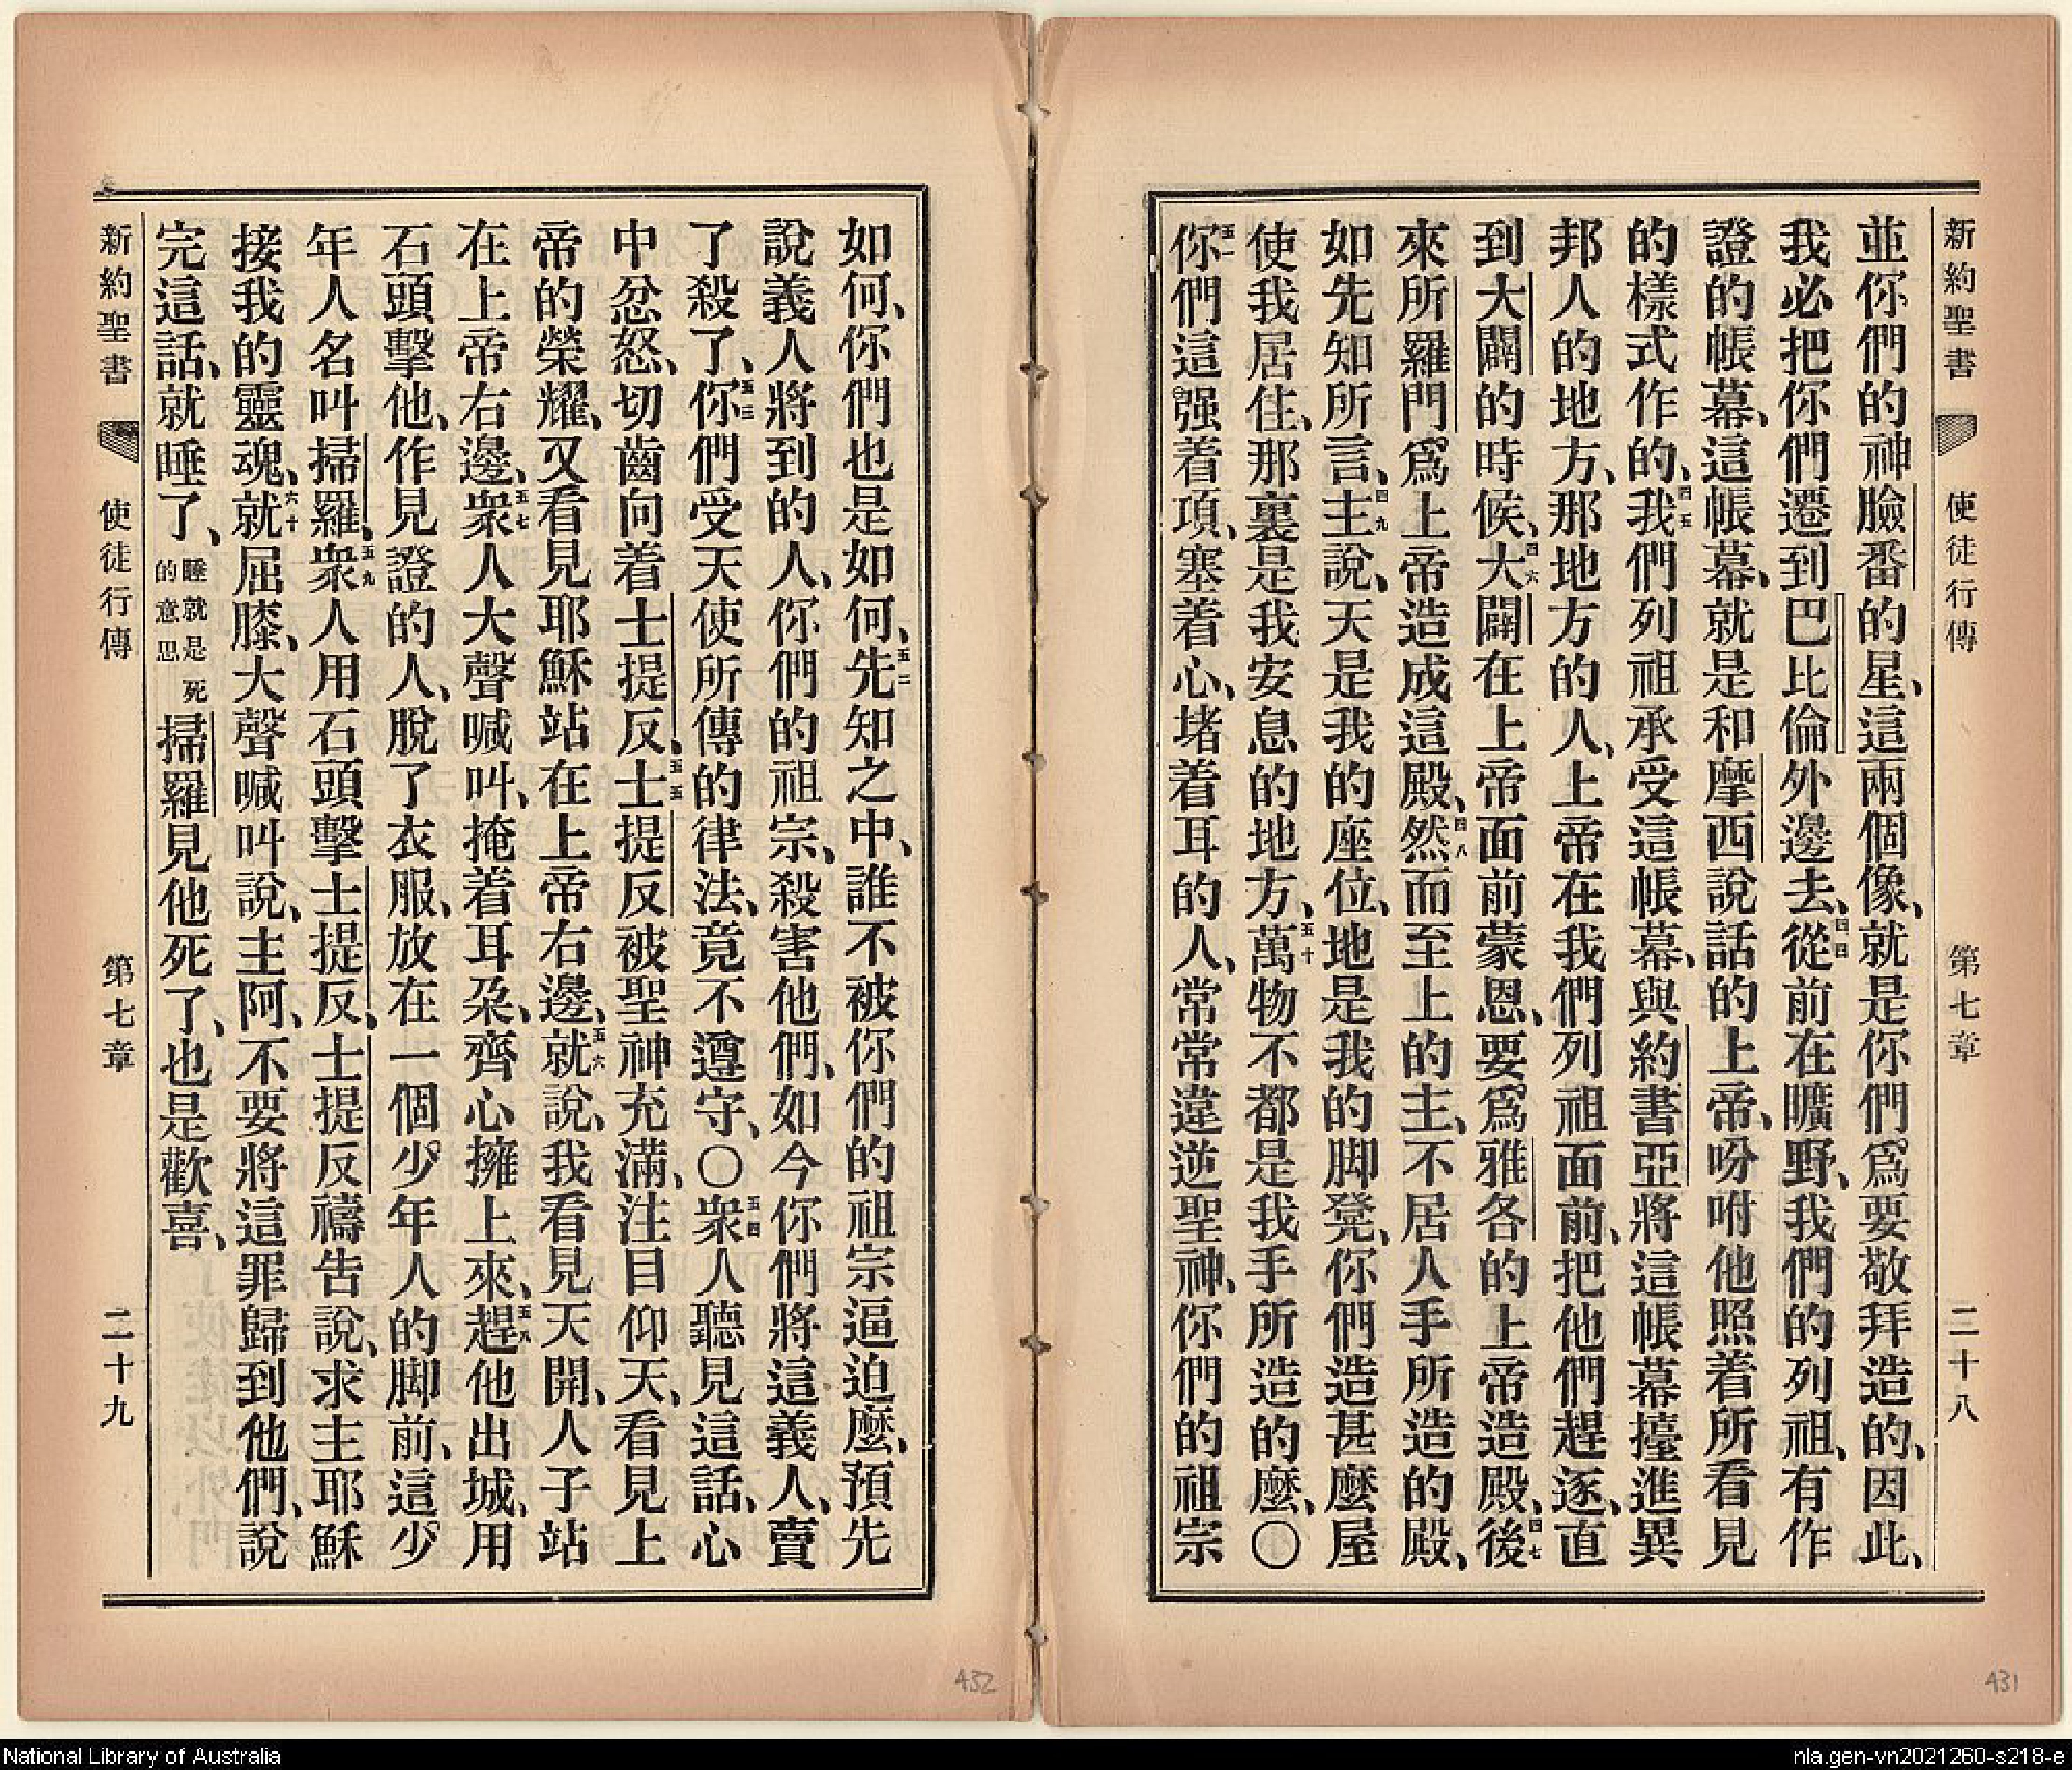 新約聖書 使徒行傳 第七章 二十八
並你們的神臉番的星、這兩個像、就是你們爲要敬拜造的、因此、
我必把你們遷到巴比倫外邊去、四四從前在曠野、我們的列祖、有作
證的帳幕、這帳幕、就是和摩西說話的上帝、吩咐他照着所看見
的樣式作的、四五我們列祖承受這帳幕、與約書亞將這帳幕擡進異
邦人的地方、那地方的人、上帝在我們列祖面前、把他們趕逐、直
到大闢的時候、四六大闢在上帝面前蒙恩、要爲雅各的上帝造殿、四七後
來所羅門爲上帝造成這殿、四八然而至上的主、不居人手所造的殿、
如先知所言、四九主說、天是我的座位、地是我的脚凳、你們造甚麼屋
使我居住、那裏是我安息的地方、五十萬物不都是我手所造的麼、〇
五一你們這强着項、塞着心、堵着耳的人、常常違逆聖神、你們的祖宗
如何、你們也是如何、五二先知之中、誰不被你們的祖宗逼迫麼、預先
說義人將到的人、你們的祖宗、殺害他們、如今你們將這義人、賣
了殺了、五三你們受天使所傳的律法、竟不遵守、〇五四衆人聽見這話、心
中忿怒、切齒向着士提反、五五士提反被聖神充滿、注目仰天、看見上
帝的榮耀、又看見耶穌站在上帝右邊、五六就說、我看見天開、人子站
在上帝右邊、五七衆人大聲喊叫、掩着耳朶、齊心擁上來、五八趕他出城、用
石頭擊他、作見證的人、脫了衣服、放在一個少年人的脚前、這少
年人名叫掃羅、五九衆人用石頭擊士提反、士提反禱告說、求主耶穌
接我的靈魂、六十就屈膝、大聲喊叫說、主阿、不要將這罪歸到他們、說
完這話、就睡了、睡就是死的意思掃羅見他死了、也是歡喜、
新約聖書 使徒行傳 第七章 二十九
432
431
National Library of Australia
nla.gen-vn2021260-s218-e